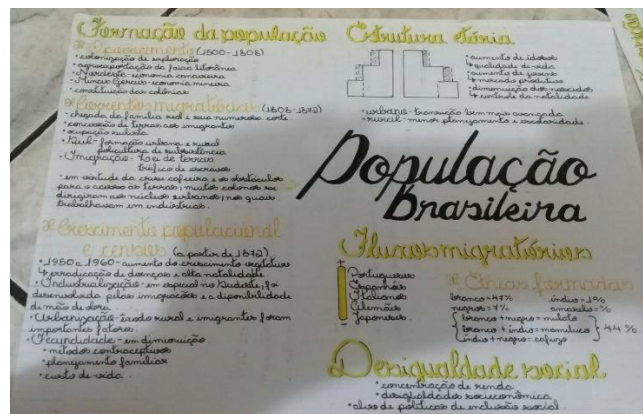 Formação da população
* Povoamento (1500-1808)
• colonização de exploração
• agroexportação da faixa litorânea
• Nordeste - economia canavieira
• Minas Gerais - economia mineira
• constituição das colônias
* Correntes migratórias (1808-1872)
• chegada da família real e sua numerosa corte
• concessão de terras aos imigrantes
• ocupação sulista
• Sul - formação urbana e rural
policultura de subsistência
• Imigração - Lei de terras
tráfico de escravos
• em virtude da crise cafeeira e os obstáculos
para o acesso às terras, muitos colonos se
dirigiram aos núcleos urbanos, nos quais
trabalhavam em indústrias.
* Crescimento populacional
e censos (a partir de 1872)
• 1950 a 1960 - aumento do crescimento vegetativo
↳ erradicação de doenças e alta natalidade
• Industrialização - em especial no Sudeste, foi
desenvolvida pelas imigrações e a disponibilidade
de mão de obra.
• Urbanização - êxodo rural e imigrantes foram
importantes fatores
• Fecundidade - em diminuição
• métodos contraceptivos
• planejamento familiar
• custo de vida.
Estrutura etária
• aumento de idosos
↳ qualidade de vida
• aumento de jovens
↳ mercado produtivo
• diminuição dos nascidos
↳ controle da natalidade
• urbana - transição bem mais avançada
• rural - menor planejamento e escolaridade
População
brasileira
Fluxos migratórios
+
Portugueses
Espanhóis
Italianos
Alemães
Japoneses
-
* Etnias formadas
branco = 47% índio = 1%
negros = 7% amarelo = %
branco + negro = mulato
branco + índio = mameluco } 44%
índio + negro = cafuzo
Desigualdade social
• concentração de renda
• desigualdades socioeconômica
• alvo de políticas de inclusão social